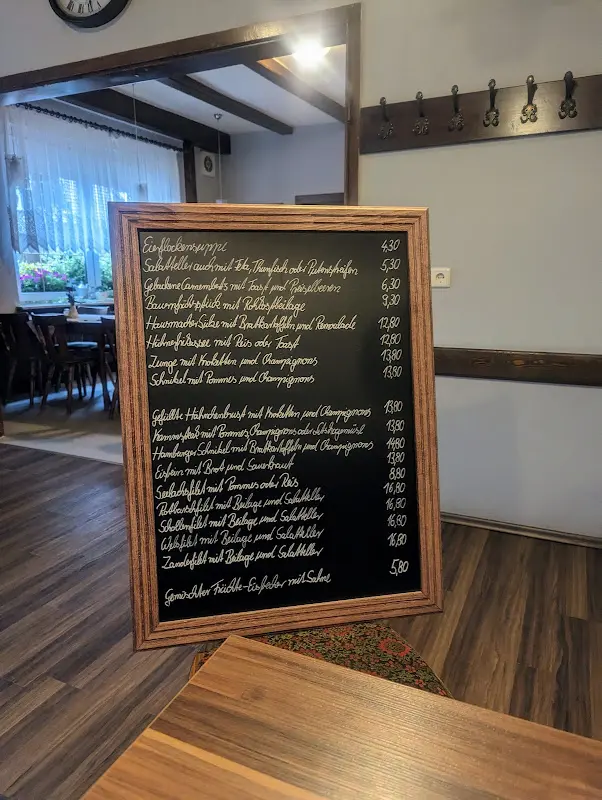 Eierflockensuppe 4,30
Salatteller auch mit Feta, Thunfisch oder Putenstreifen 5,30
Gebackene Camembert's mit Toast und Preiselbeeren 6,30
Bauernfrühstück mit Rohkostbeilage 9,30
Hausmacher Sülze mit Bratkartoffeln und Remoulade 12,80
Hühnerfrikassee mit Reis oder Toast 12,80
Zunge mit Kroketten und Champignons 13,80
Schnitzel mit Pommes und Champignons 13,80
Gefüllte Hähnchenbrust mit Kroketten und Champignons 13,80
Kammsteak mit Pommes, Champignons oder Letschogemüse 13,80
Hamburger Schnitzel mit Bratkartoffeln und Champignons 14,80
Eisbein mit Brot und Sauerkraut 13,80
Seelachsfilet mit Pommes oder Reis 8,80
Rotbarschfilet mit Beilage und Salatteller 16,80
Schollenfilet mit Beilage und Salatteller 16,80
Welsfilet mit Beilage und Salatteller 16,80
Zanderfilet mit Beilage und Salatteller 16,80
Gemischter Früchte-Eisbecher mit Sahne 5,80